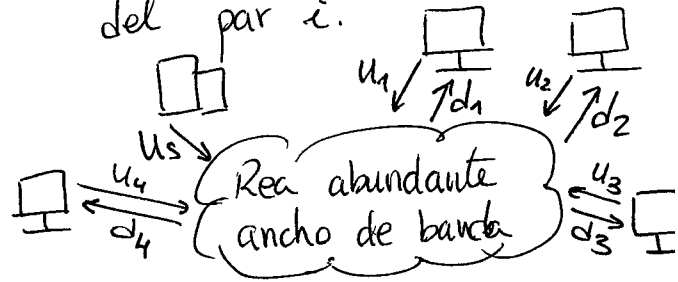 del par i.
u₁ d₁ u₂ d₂
us
u₄ Rea abundante u₃
d₄ ancho de banda d₃